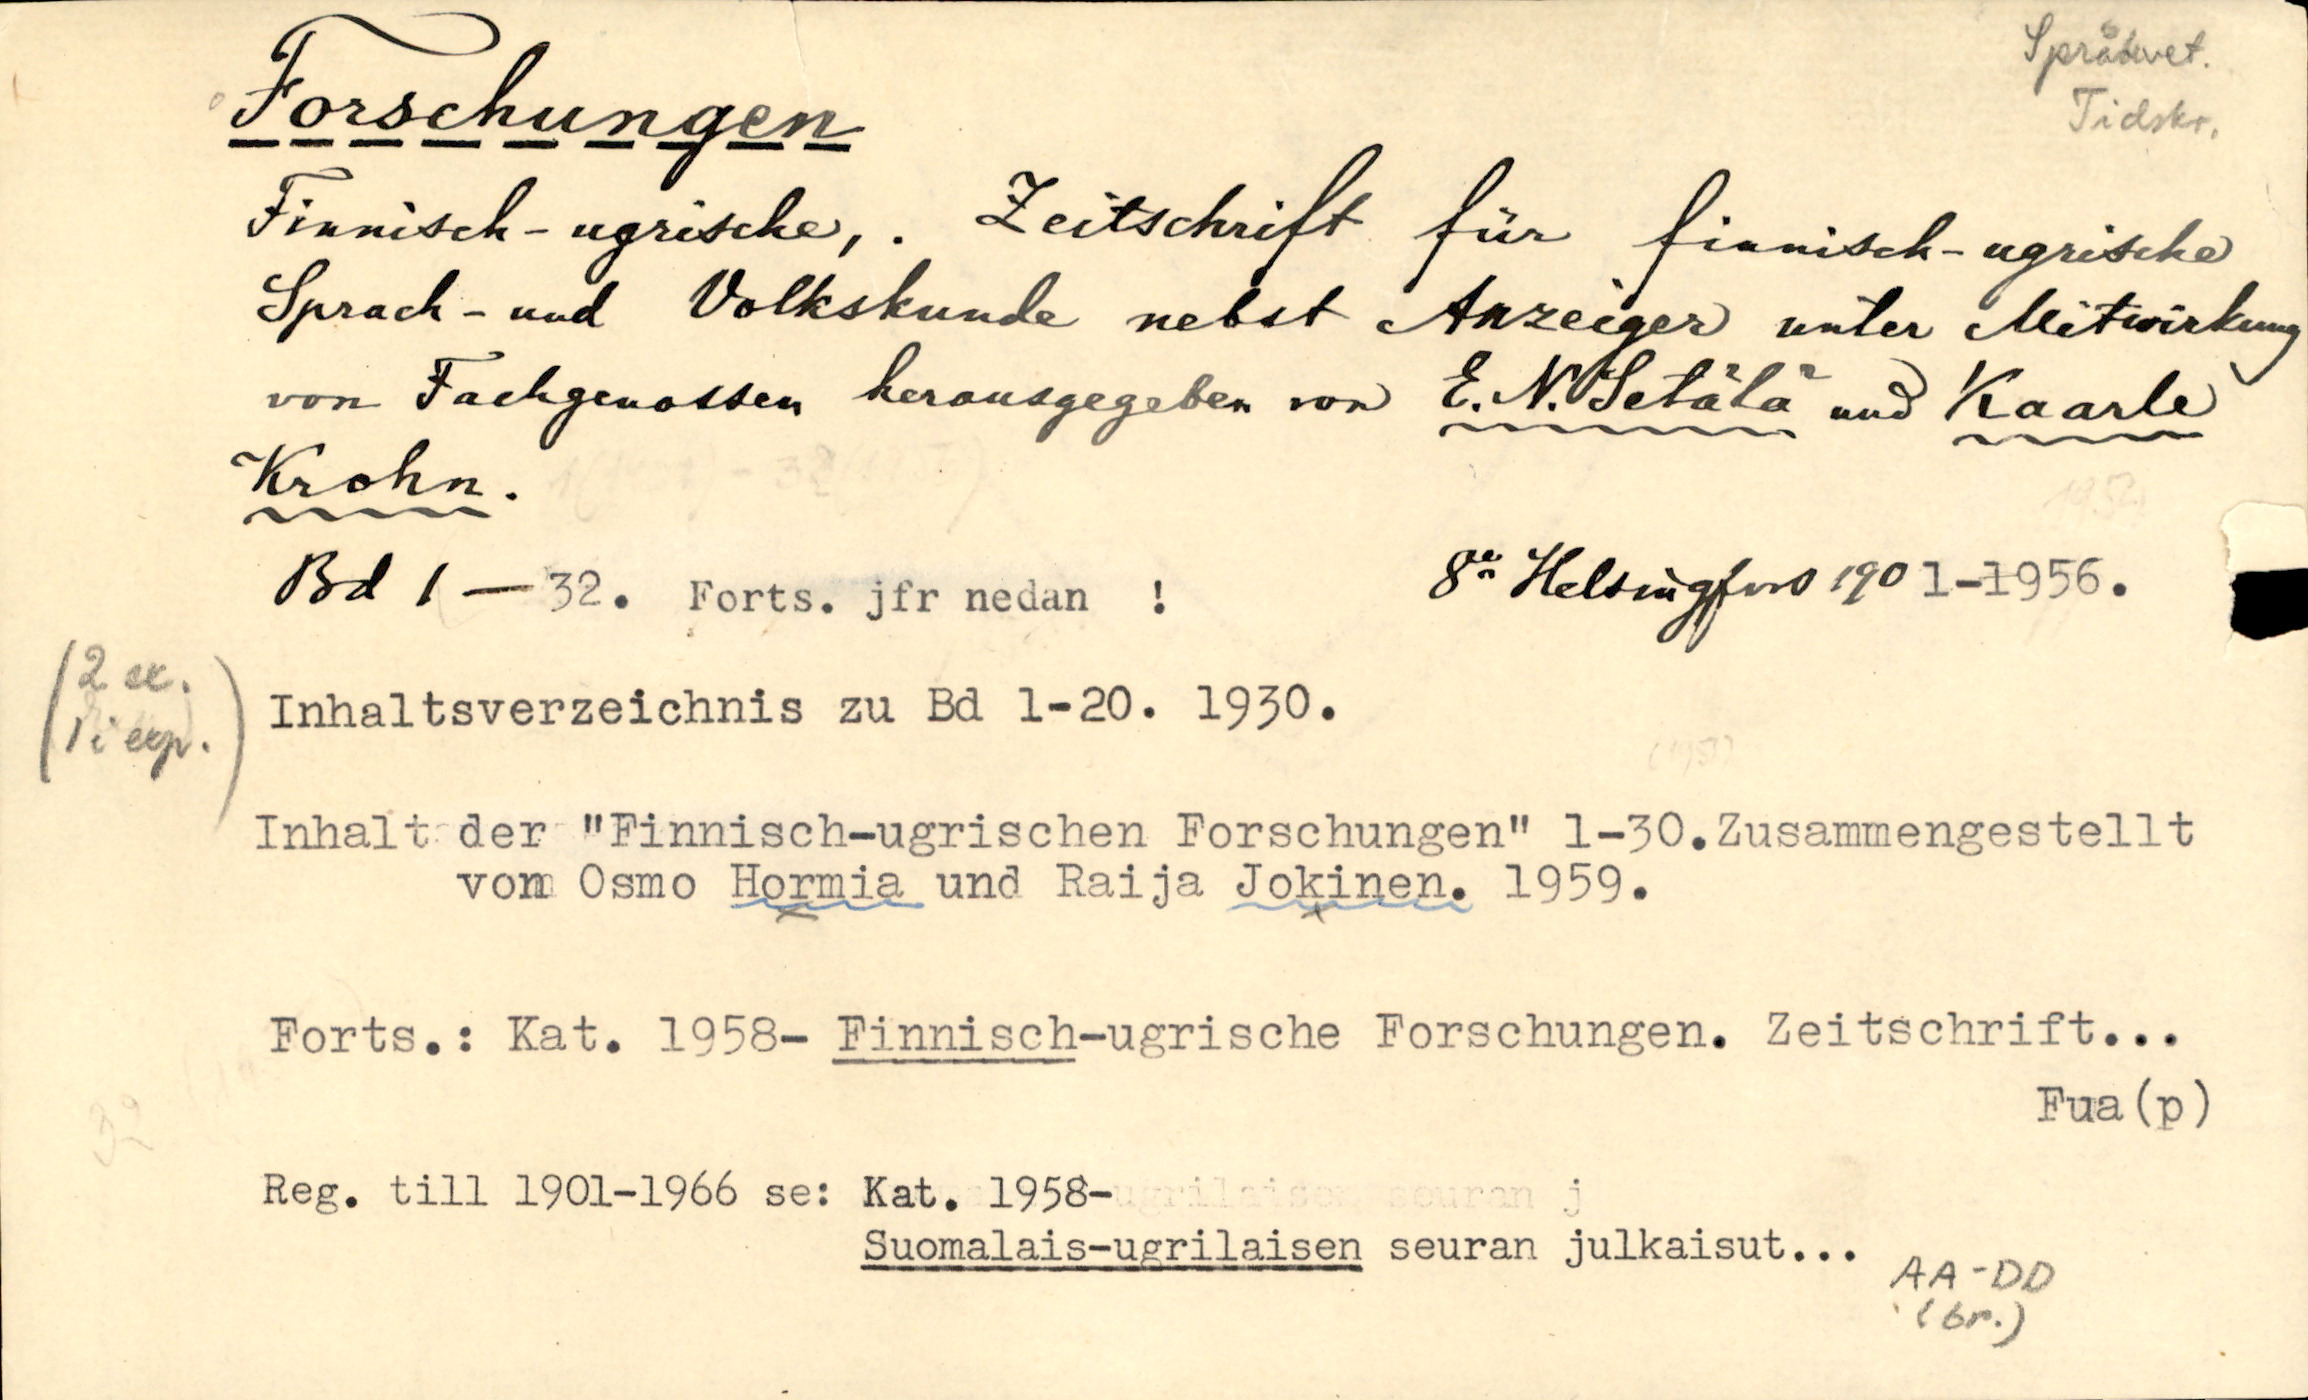 Språkvet.
Tidskr.
Forschungen
Finnisch-ugrische, . Zeitschrift für finnisch-ugrische
Sprach- und Volkskunde nebst Anzeiger unter Mitwirkung
von Fachgenossen herausgegeben von E. N. Setälä und Kaarle
Krohn.
Bd 1 — 32. Forts. jfr nedan ! 8:o Helsingfors 1901-1956.
(2 ex.
1 i exp.)
Inhaltsverzeichnis zu Bd 1-20. 1930.
(1951)
Inhalt der "Finnisch-ugrischen Forschungen" 1-30. Zusammengestellt
von Osmo Hormia und Raija Jokinen. 1959.
Forts.: Kat. 1958- Finnisch-ugrische Forschungen. Zeitschrift...
Fua(p)
32
Reg. till 1901-1966 se: Kat. 1958-
Suomalais-ugrilaisen seuran julkaisut...
AA-DD
(br.)